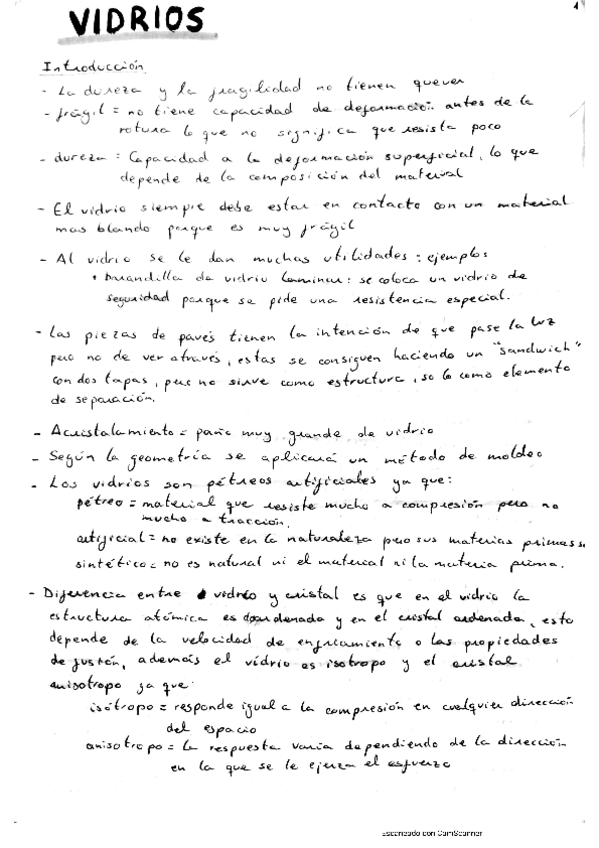 VIDRIOS
Introducción
- La dureza y la fragilidad no tienen quever
- frágil = no tiene capacidad de deformación antes de la
rotura lo que no significa que resista poco
- dureza = Capacidad a la deformación superficial, lo que
depende de la composición del material
- El vidrio siempre debe estar en contacto con un material
mas blando porque es muy frágil
- Al vidrio se le dan muchas utilidades: ejemplos
• barandilla de vidrio laminar: se coloca un vidrio de
seguridad porque se pide una resistencia especial.
- Las piezas de pavés tienen la intención de que pase la luz
pero no de ver através, estas se consiguen haciendo un "sandwich"
con dos tapas, pero no sirve como estructura, solo como elemento
de separación.
- Acristalamiento = paño muy grande de vidrio
- Según la geometría se aplicará un método de moldeo
- Los vidrios son pétreos artificiales ya que:
pétreo = material que resiste mucho a compresión pero no
mucho a tracción.
artificial = no existe en la naturaleza pero sus materias primas si
sintético = no es natural ni el material ni la materia prima.
- Diferencia entre vidrio y cristal es que en el vidrio la
estructura atómica es desordenada y en el cristal ordenada, esto
depende de la velocidad de enfriamiento o las propiedades
de fusión, además el vidrio es isotropo y el cristal
anisotropo ya que:
isótropo = responde igual a la compresión en cualquier dirección
del espacio
anisotropo = la respuesta varia dependiendo de la dirección
en la que se le ejerza el esfuerzo
Escaneado con CamScanner